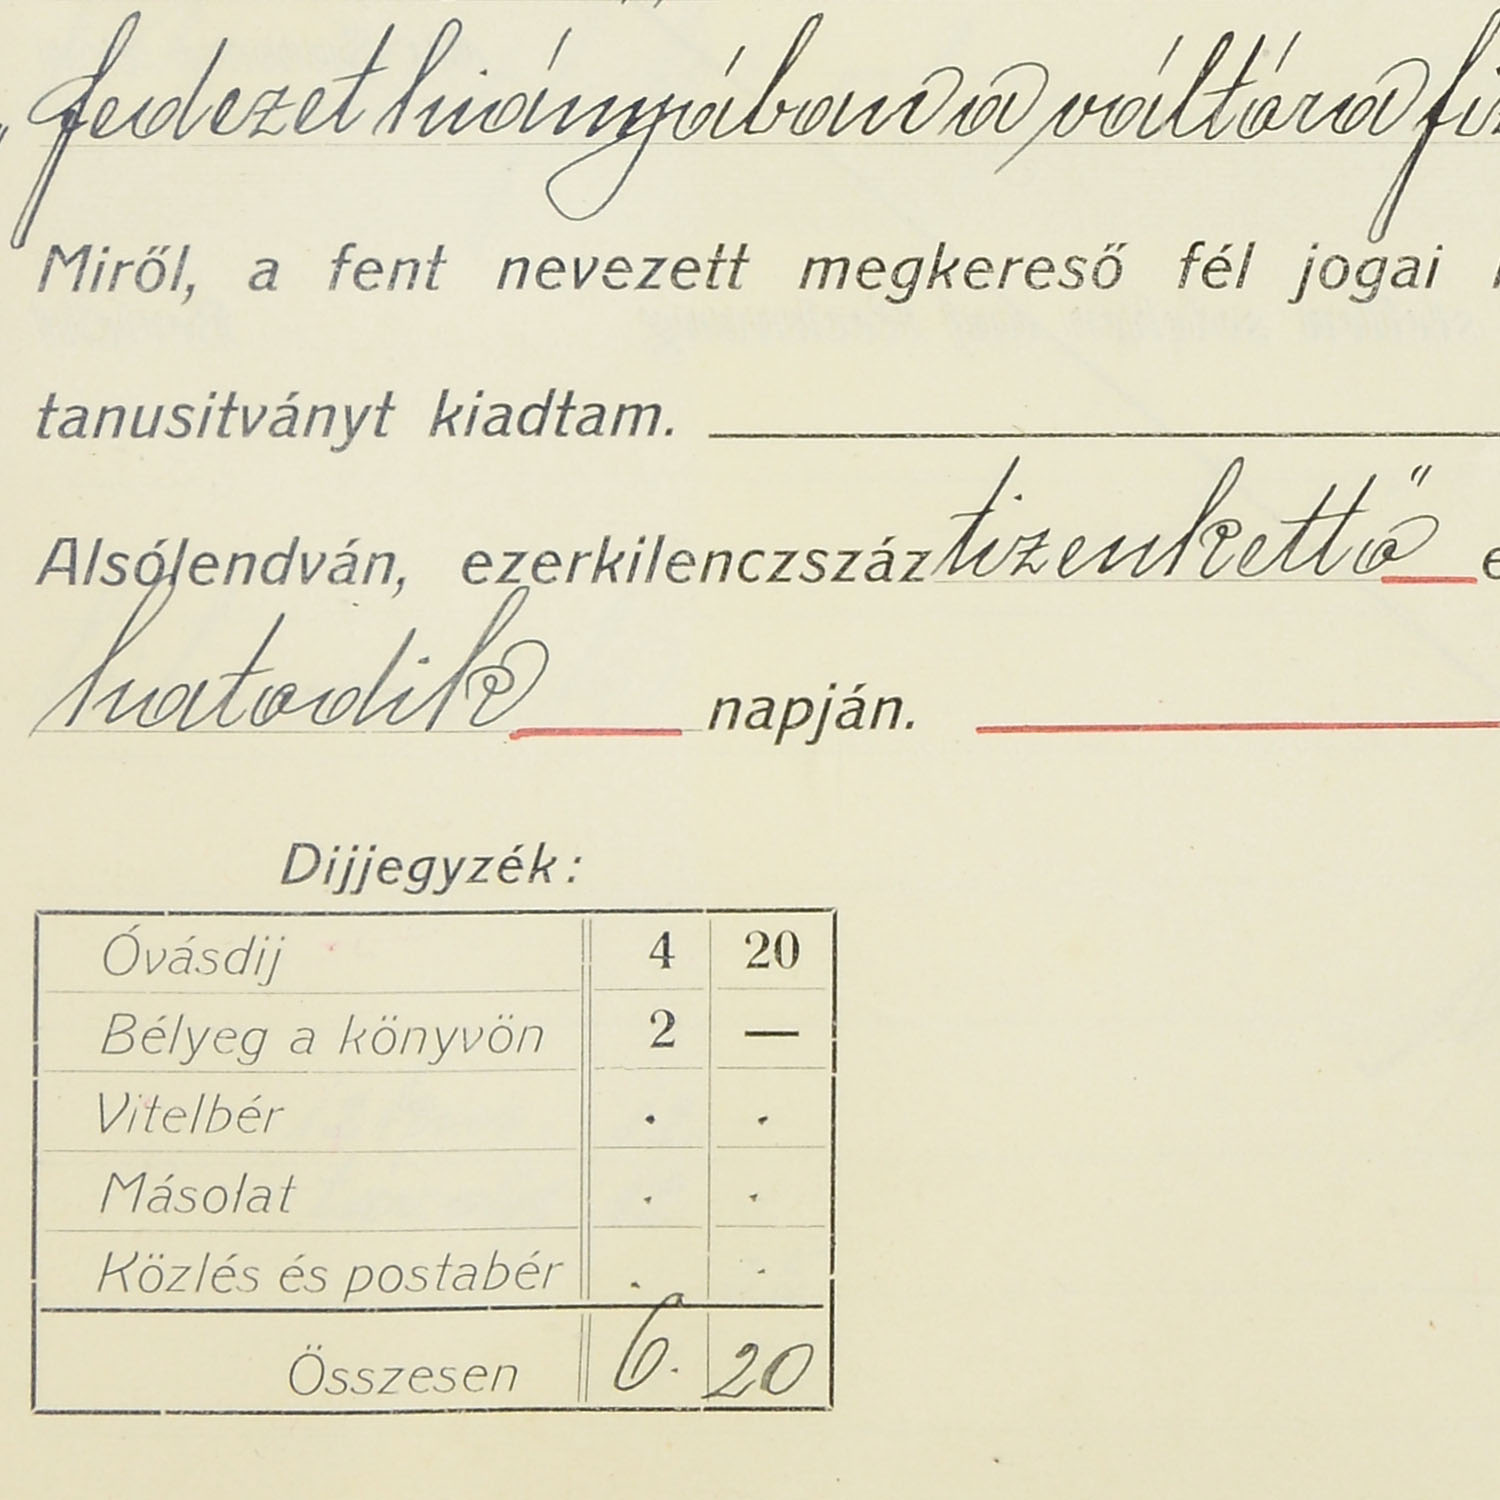 „fedezet hiányában a váltóra
Miről, a fent nevezett megkereső fél jogai
tanusitványt kiadtam.
Alsólendván, ezerkilenczszáz tizenkettő
hatodik napján.
Dijjegyzék:
Óvásdij 4 20
Bélyeg a könyvön 2 —
Vitelbér . .
Másolat . .
Közlés és postabér . .
Összesen 6. 20